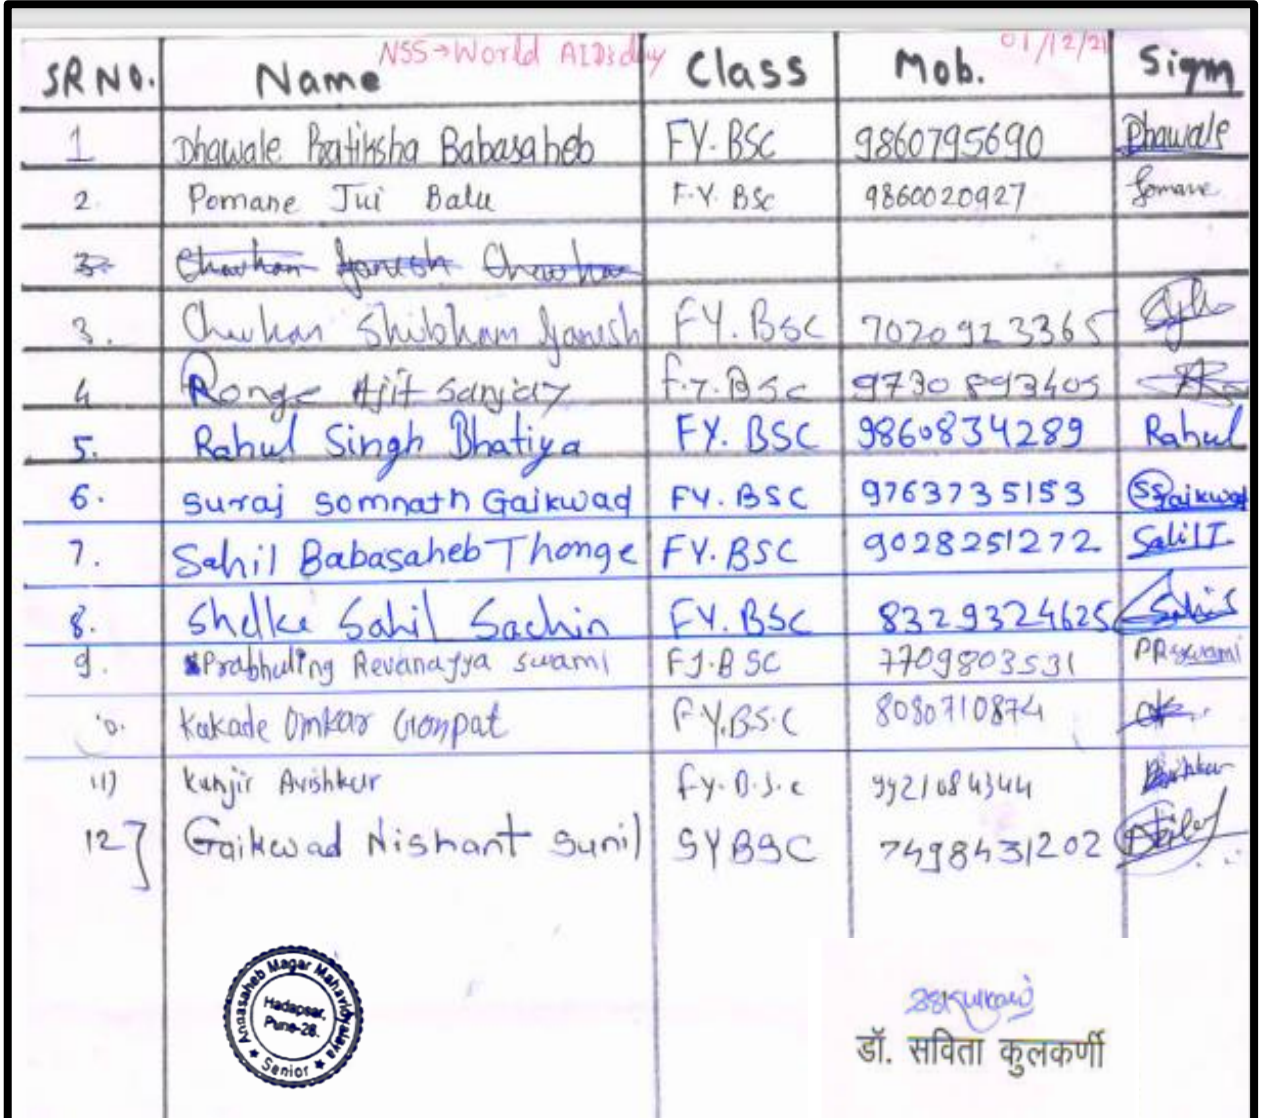 NSS→World AIDs day 01/12/21
SR NO. Name Class Mob. Sigm
1 Dhawale Pratiksha Babasaheb FY.BSC 9860795690 Dhawale
2. Pomane Jui Balu F.Y. BSc 9860020927 Pomane
3. Chavhan Ganesh Chavhan
3. Chavhan Shibham Ganesh FY.BSC 7020923365
4 Ronge Ajit Sanjay F.Y.BSc 9730893405
5. Rahul Singh Bhatiya FY. BSC 9860834289 Rahul
6. Suraj Somnath Gaikwad FY.BSC 9763735153 SSGaikwad
7. Sahil Babasaheb Thonge FY.BSC 9028251272 SahilT.
8. Shelke Sahil Sachin FY.BSC 8329324625 Sahil
9. Prabhuling Revanayya Swami FY.BSC 7709803531 PRSwami
10. Kakade Omkar Ganpat F.Y.BS.C 8080710874
11) Kunjir Avishkar F.Y.B.S.c 9921084344 Avishkar
12] Gaikwad Nishant Sunil SYBSC 7498431202
Annasaheb Magar Mahavidyalaya
Hadapsar,
Pune-28.
★ Senior ★
डॉ. सविता कुलकर्णी